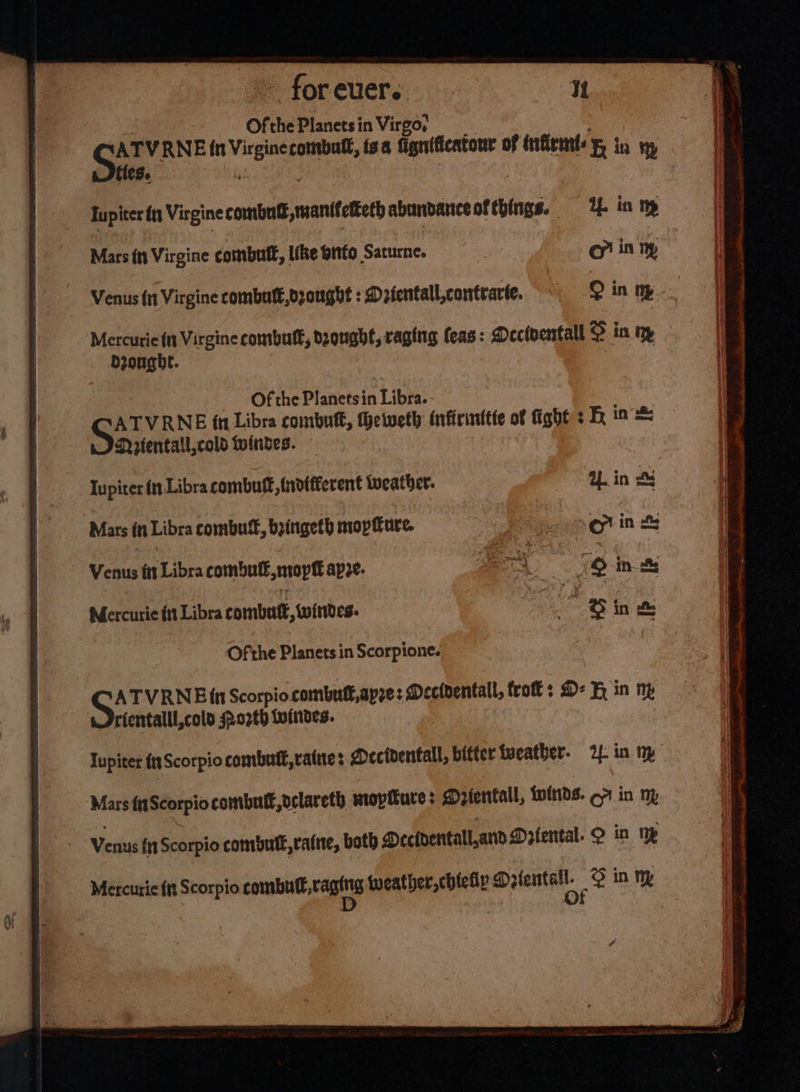 for euer. 11
Of the Planets in Virgo.
SATVRNE in Virgine combust, is a significatour of infirmi- ♄ in ♍
ties.
Iupiter in Virgine combust, manifesteth abundance of things. ♃ in ♍
Mars in Virgine combust, like vnto Saturne. ♂ in ♍
Venus in Virgine combust, drought : Orientall, contrarie. ♀ in ♍
Mercurie in Virgine combust, drought, raging seas : Occidentall ☿ in ♍
drought.
Of the Planets in Libra.
SATVRNE in Libra combust, sheweth infirmitie of sight : ♄ in ♎
Orientall, cold windes.
Iupiter in Libra combust, indifferent weather. ♃ in ♎
Mars in Libra combust, bringeth moysture. ♂ in ♎
Venus in Libra combust, moyst ayre. ♀ in ♎
Mercurie in Libra combust, windes. ☿ in ♎
Of the Planets in Scorpione.
SATVRNE in Scorpio combust, ayre : Occidentall, frost : O- ♄ in ♏
rientalll, cold North windes.
Iupiter in Scorpio combust, raine : Occidentall, bitter weather. ♃ in ♏
Mars in Scorpio combust, declareth moysture : Orientall, winds. ♂ in ♏
Venus in Scorpio combust, raine, both Occidentall, and Oriental. ♀ in ♏
Mercurie in Scorpio combust, raging weather, chiefly Orientall. ☿ in ♏
D Of